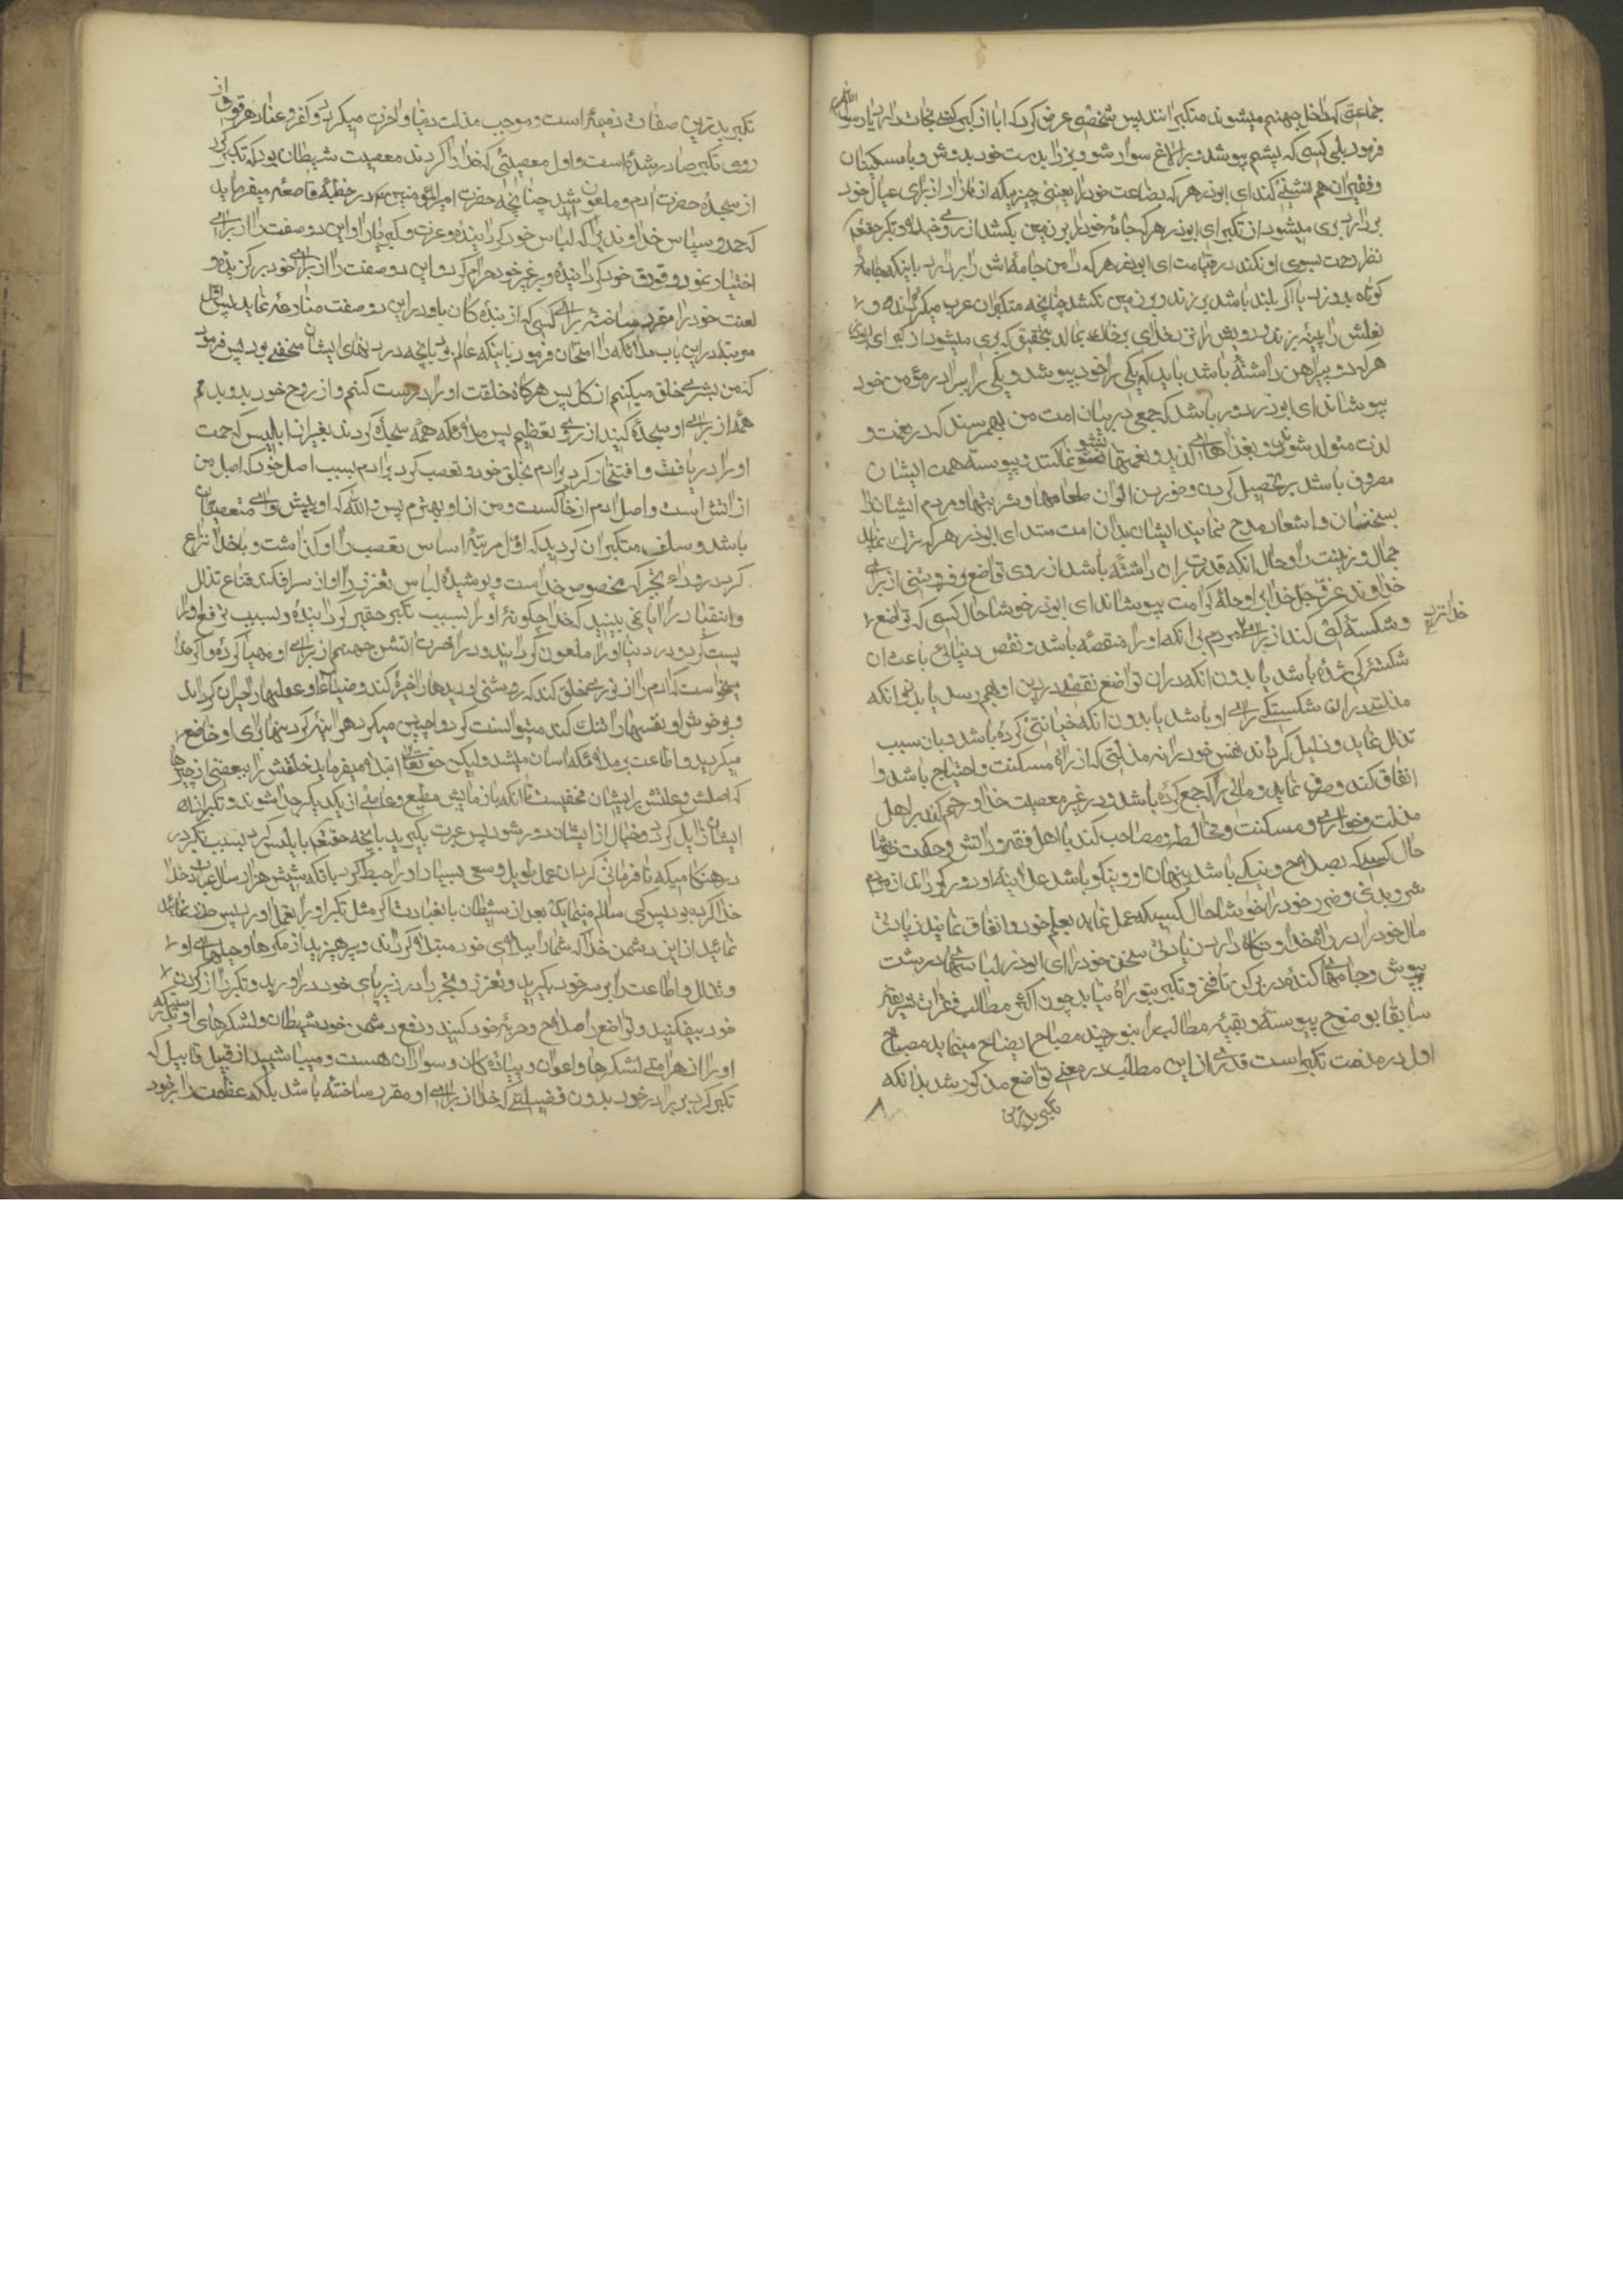 جماعتی که داخل جهنم میشوند متکبرانند پس شخصی عرض کرد که ایا از کبر کسی نجات دارد یا رسول الله
فرمود بلی کسی که پشم پوشد و بر الاغ سوار شود و بز را بدست خود بدوشد و با مسکینان
و فقیران هم نشینی کند ای ابوذر هر که بضاعت خود را یعنی چیزیکه از بازار از برای عیال خود
بردارد بری میشود از تکبر ای ابوذر هر که جامهٔ خود را بر زمین بکشد از روی خیلاء و تکبر حقتعالی
نظر رحمت بسوی او نکند در قیامت ای ابوذر هر که دامن جامه‌اش را بردارد باینکه جامه را
کوتاه بدوزد یا اگر بلند باشد بر زند و بر زمین نکشد چنانچه متکبران عرب میکرده‌اند و
نعلش را پینه بزند و رویش را نزد خدای بر خاک بمالد بتحقیق که بری میشود از کبر ای ابوذر
هر که دو پیراهن داشته باشد باید که یکی را خود بپوشد و یکی را ببرادر مؤمن خود
بپوشاند ای ابوذر زود باشد که جمعی در میان امت من بهمرسند که در نعمت و
لذت متولد شوند و بغذاهای لذیذ و نعمتها نشو نما کنند و پیوسته همت ایشان
مصروف باشد بر تحصیل کردن و خوردن الوان طعامها و شربتها و مردم ایشانرا
بسخنان و اشعار مدح نمایند ایشان بدان امت منند ای ابوذر هر که ترک نماید
جمال و زینت را و حال انکه قدرت بران داشته باشد از روی تواضع و فروتنی از برای
خداوند عزّ و جلّ خدا بر او حلهٔ کرامت بپوشاند ای ابوذر خوشا حال کسی که تواضع
و شکسته‌گی کند از برای مردم بی انکه او را منقصه باشد و نقص دنیائی باعث ان
شکستگی شده باشد یا بدون انکه دران تواضع نقصی در دین او بهم رسد یا بدون انکه
مذلتی دران شکستگی برای او باشد یا بدون انکه خیانتی کرده باشد و بان سبب
تذلل نماید و ذلیل گرداند نفس خود را نه مذلتی که از راه مسکنت و احتیاج باشد و
انفاق کند و صرف نماید و مالی را که جمع کرده باشد در غیر معصیت خدا و رحم کند بر اهل
مذلت و خواری و مسکنت و مخالطه و مصاحبت کند با اهل فقه و دانش و حکمت خوشا
حال کسیکه بصلاح و نیکی باشد پنهان او و نیکو باشد علانیهٔ او و دور گرداند از مردم
شر و بدی و ضرر خود را خوشا حال کسیکه عمل نماید بعلم خود و انفاق نماید زیادتی
مال خود را در راه خدا و نگاه دارد زیادتی سخن خود را ای ابوذر لباسهای درشت
بپوش و جامهای کنده در بر کن تا فخر و تکبر بتو راه نیابد چون اکثر مطالب فقرات شریفه
سابقا بوضوح پیوسته و بقیهٔ مطالب را بنور چند مصباح ایضاح مینماید مصباح
اول در مذمت تکبر است قدری از این مطالب در معنی تواضع مذکور شد بدانکه
تکبر بدترین
تکبر بدترین صفات ذمیمه است و موجب مذلت دنیا و اخرت میگردد و کفر و عناد هر قومی از
روی تکبر صادر شده است و اول معصیتی که خدا را کردند معصیت شیطان بود که تکبر کرد
از سجدهٔ حضرت ادم و ملعون شد چنانچه حضرت امیرالمؤمنین در خطبهٔ قاصعه میفرماید
که حمد و سپاس خداوندیرا که لباس خود گردانیده عزت و کبریا را و این دو صفت را از برای
اختیار نمود و قورق خود گردانیده و بر غیر خود حرام کرد و این دو صفت را از برای خود برگزیده و
لعنت خود را مقرر ساخته برای کسی که از بندگان با او در این دو صفت منازعه نماید پس
در این باب ملائکه را امتحان فرمود با اینکه عالم بود بانچه در دلهای ایشان مخفی بود پس فرمود
که من بشری خلق میکنم از گل پس هرگاه خلقت او را درست کنم و از روح خود بدو بدمم
همه از برای او سجده کنید از روی تعظیم پس ملائکه همه سجده کردند بغیر از ابلیس که حمیت
او را دریافت و افتخار کرد بر ادم بخلق خود و تعصب کرد بر ادم بسبب اصل خود که اصل من
از اتش است و اصل ادم از خاکست و من از او بهترم پس والله که او پیش وای متعصبان
باشد و سلف متکبران گردید که اول مرتبه اساس تعصب را او گذاشت و با خدا نزاع
کرد در ردای تجبر که مخصوص خداست و پوشیده لباس تعزز را و از سر افکند قناع تذلل
و انقیاد را ایا نمی بینید که خدا چگونه او را بسبب تکبر حقیر گردانیده و بسبب ترفع او را
پست کرد و در دنیا او را ملعون گردانید و در اخرت اتش جهنم از برای او مهیا کرده و اگر خدا
میخواست که ادم را از نوری خلق کند که روشنی او دیدها را خیره کند و ضیاء او عقلها را حیران گرداند
و بوی خوش او نفسها را تنک کند میتوانست کرد و اگر چنین میکرد هر اینه گردنها برای او خاضع
میگردید و اطاعت بر ملائکه اسان میشد ولیکن حق تعالی ابتلا میفرماید خلقش را ببعضی از چیزها
که اصلش و علتش بر ایشان مخفیست تا انکه بازمایش مطیع و عاصی از یکدیگر جدا شوند و تکبر از
ایشان زایل گردد و خیال از ایشان دور شود پس عبرت بگیرید بانچه حقتعالی با ابلیس کرد بسبب تکبر در
هنگامیکه نافرمانی کرد ان عمل طویل و سعی بسیار او را حبط کرد با انکه شش هزار سال عبادت خدا
کرده بود پس کی سالم میماند بعد از شیطان با عبادت اگر مثل تکبر او را بعمل اورد پس حذر نمائید
نمائید از این دشمن خدا که شما را ببلای خود مبتلا گرداند و بپرهیزید از مکرها و حیلهای او
و تذلل و اطاعت را بر سر خود بگیرید و تعزز و تجبر را در زیر پای خود دراورید و تکبر را از گردنهای
خود بیفکنید و تواضع را صلاح و حربهٔ خود کنید و دفع دشمن خود شیطان و لشکرهای او بدرستیکه
او را از هر امتی لشکرها و اعوان و پیادگان و سواران هست و مباشید از قبیل قابیل که
تکبر کرد بر برادر خود بدون فضیلتی که خدا از برای او مقرر ساخته باشد بلکه عظمت را بر خود